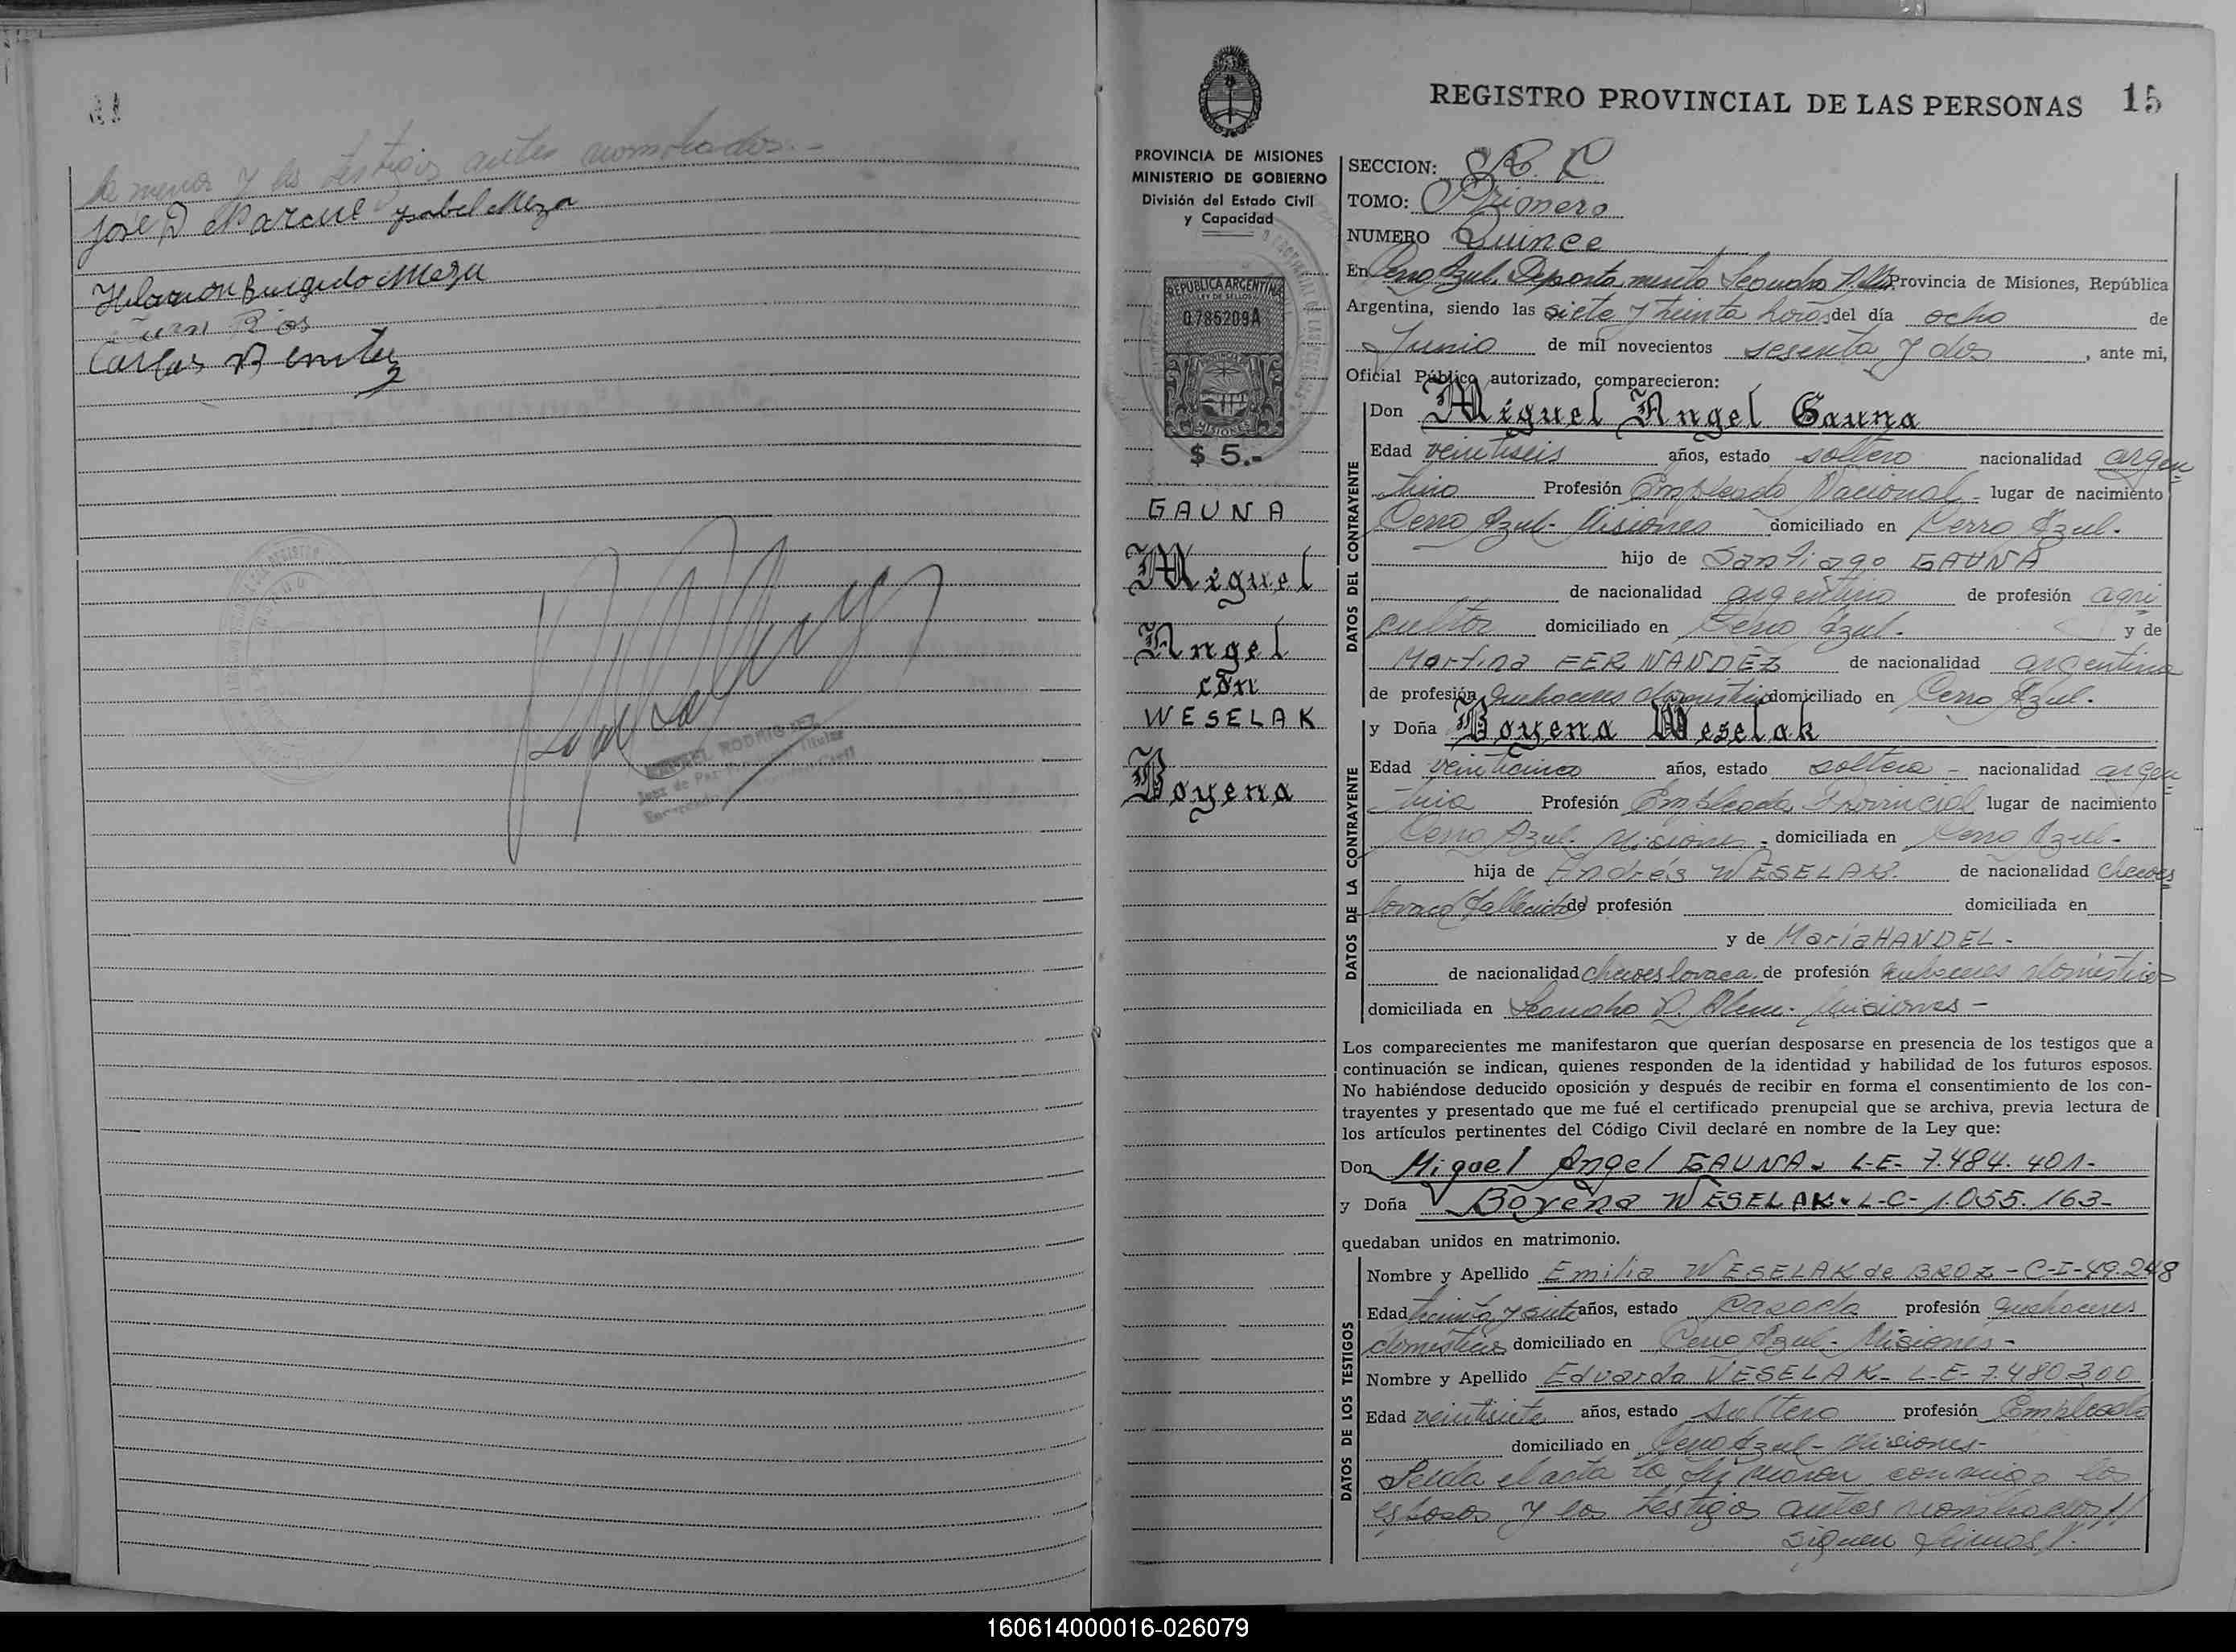 la menor y los testigos antes nombrados.-
José D Ysabel Meza
Meza
Juan Rios
Carlos Benitez
Juez de Paz Titular
REGISTRO PROVINCIAL DE LAS PERSONAS 15
PROVINCIA DE MISIONES
MINISTERIO DE GOBIERNO
División del Estado Civil
y Capacidad
REPUBLICA ARGENTINA
LEY DE SELLOS
0785209A
MISIONES
$ 5.-
GAUNA
Miguel
Angel
con
WESELAK
Boyena
SECCION: R. C
TOMO: Primero
NUMERO Quince
En Cerro Azul, Departamento Leandro N. Alem Provincia de Misiones, República
Argentina, siendo las siete y treinta horas del día ocho de
Junio de mil novecientos sesenta y dos, ante mi,
Oficial Público autorizado, comparecieron:
DATOS DEL CONTRAYENTE
Don Miguel Angel Gauna
Edad veintiseis años, estado soltero nacionalidad argen
tino Profesión Empleado Nacional - lugar de nacimiento
Cerro Azul - Misiones domiciliado en Cerro Azul.
hijo de Santiago GAUNA
de nacionalidad argentino de profesión agri
cultor domiciliado en Cerro Azul. y de
Martina FERNANDEZ de nacionalidad argentina
de profesión quehaceres domésticos domiciliado en Cerro Azul.
DATOS DE LA CONTRAYENTE
y Doña Boyena Weselak
Edad veinticinco años, estado soltera - nacionalidad argen
tina Profesión Empleada Provincial lugar de nacimiento
Cerro Azul. Misiones - domiciliada en Cerro Azul -
hija de Andrés WESELAK. de nacionalidad checoes
lovaco (fallecido) de profesión domiciliada en
y de María HANDEL -
de nacionalidad checoeslovaca. de profesión quehaceres domésticos
domiciliada en Leandro N. Alem. Misiones -
Los comparecientes me manifestaron que querían desposarse en presencia de los testigos que a
continuación se indican, quienes responden de la identidad y habilidad de los futuros esposos.
No habiéndose deducido oposición y después de recibir en forma el consentimiento de los con-
trayentes y presentado que me fué el certificado prenupcial que se archiva, previa lectura de
los artículos pertinentes del Código Civil declaré en nombre de la Ley que:
Don Miguel Angel GAUNA. L-E- 7.484.401-
y Doña Boyena WESELAK. L-C- 1.055.163-
quedaban unidos en matrimonio.
DATOS DE LOS TESTIGOS
Nombre y Apellido Emilia WESELAK de BROZ - C-I-49.248
Edad treinta y siete años, estado casada profesión quehaceres
domésticos domiciliado en Cerro Azul - Misiones -
Nombre y Apellido Eduardo VESELAK - L-E- 7.480.300
Edad veintisiete años, estado soltero profesión Empleado
domiciliado en Cerro Azul - Misiones -
Leida el acta la firmaron conmigo los
esposos y los testigos antes nombrados//
siguen firmas //.
160614000016-026079